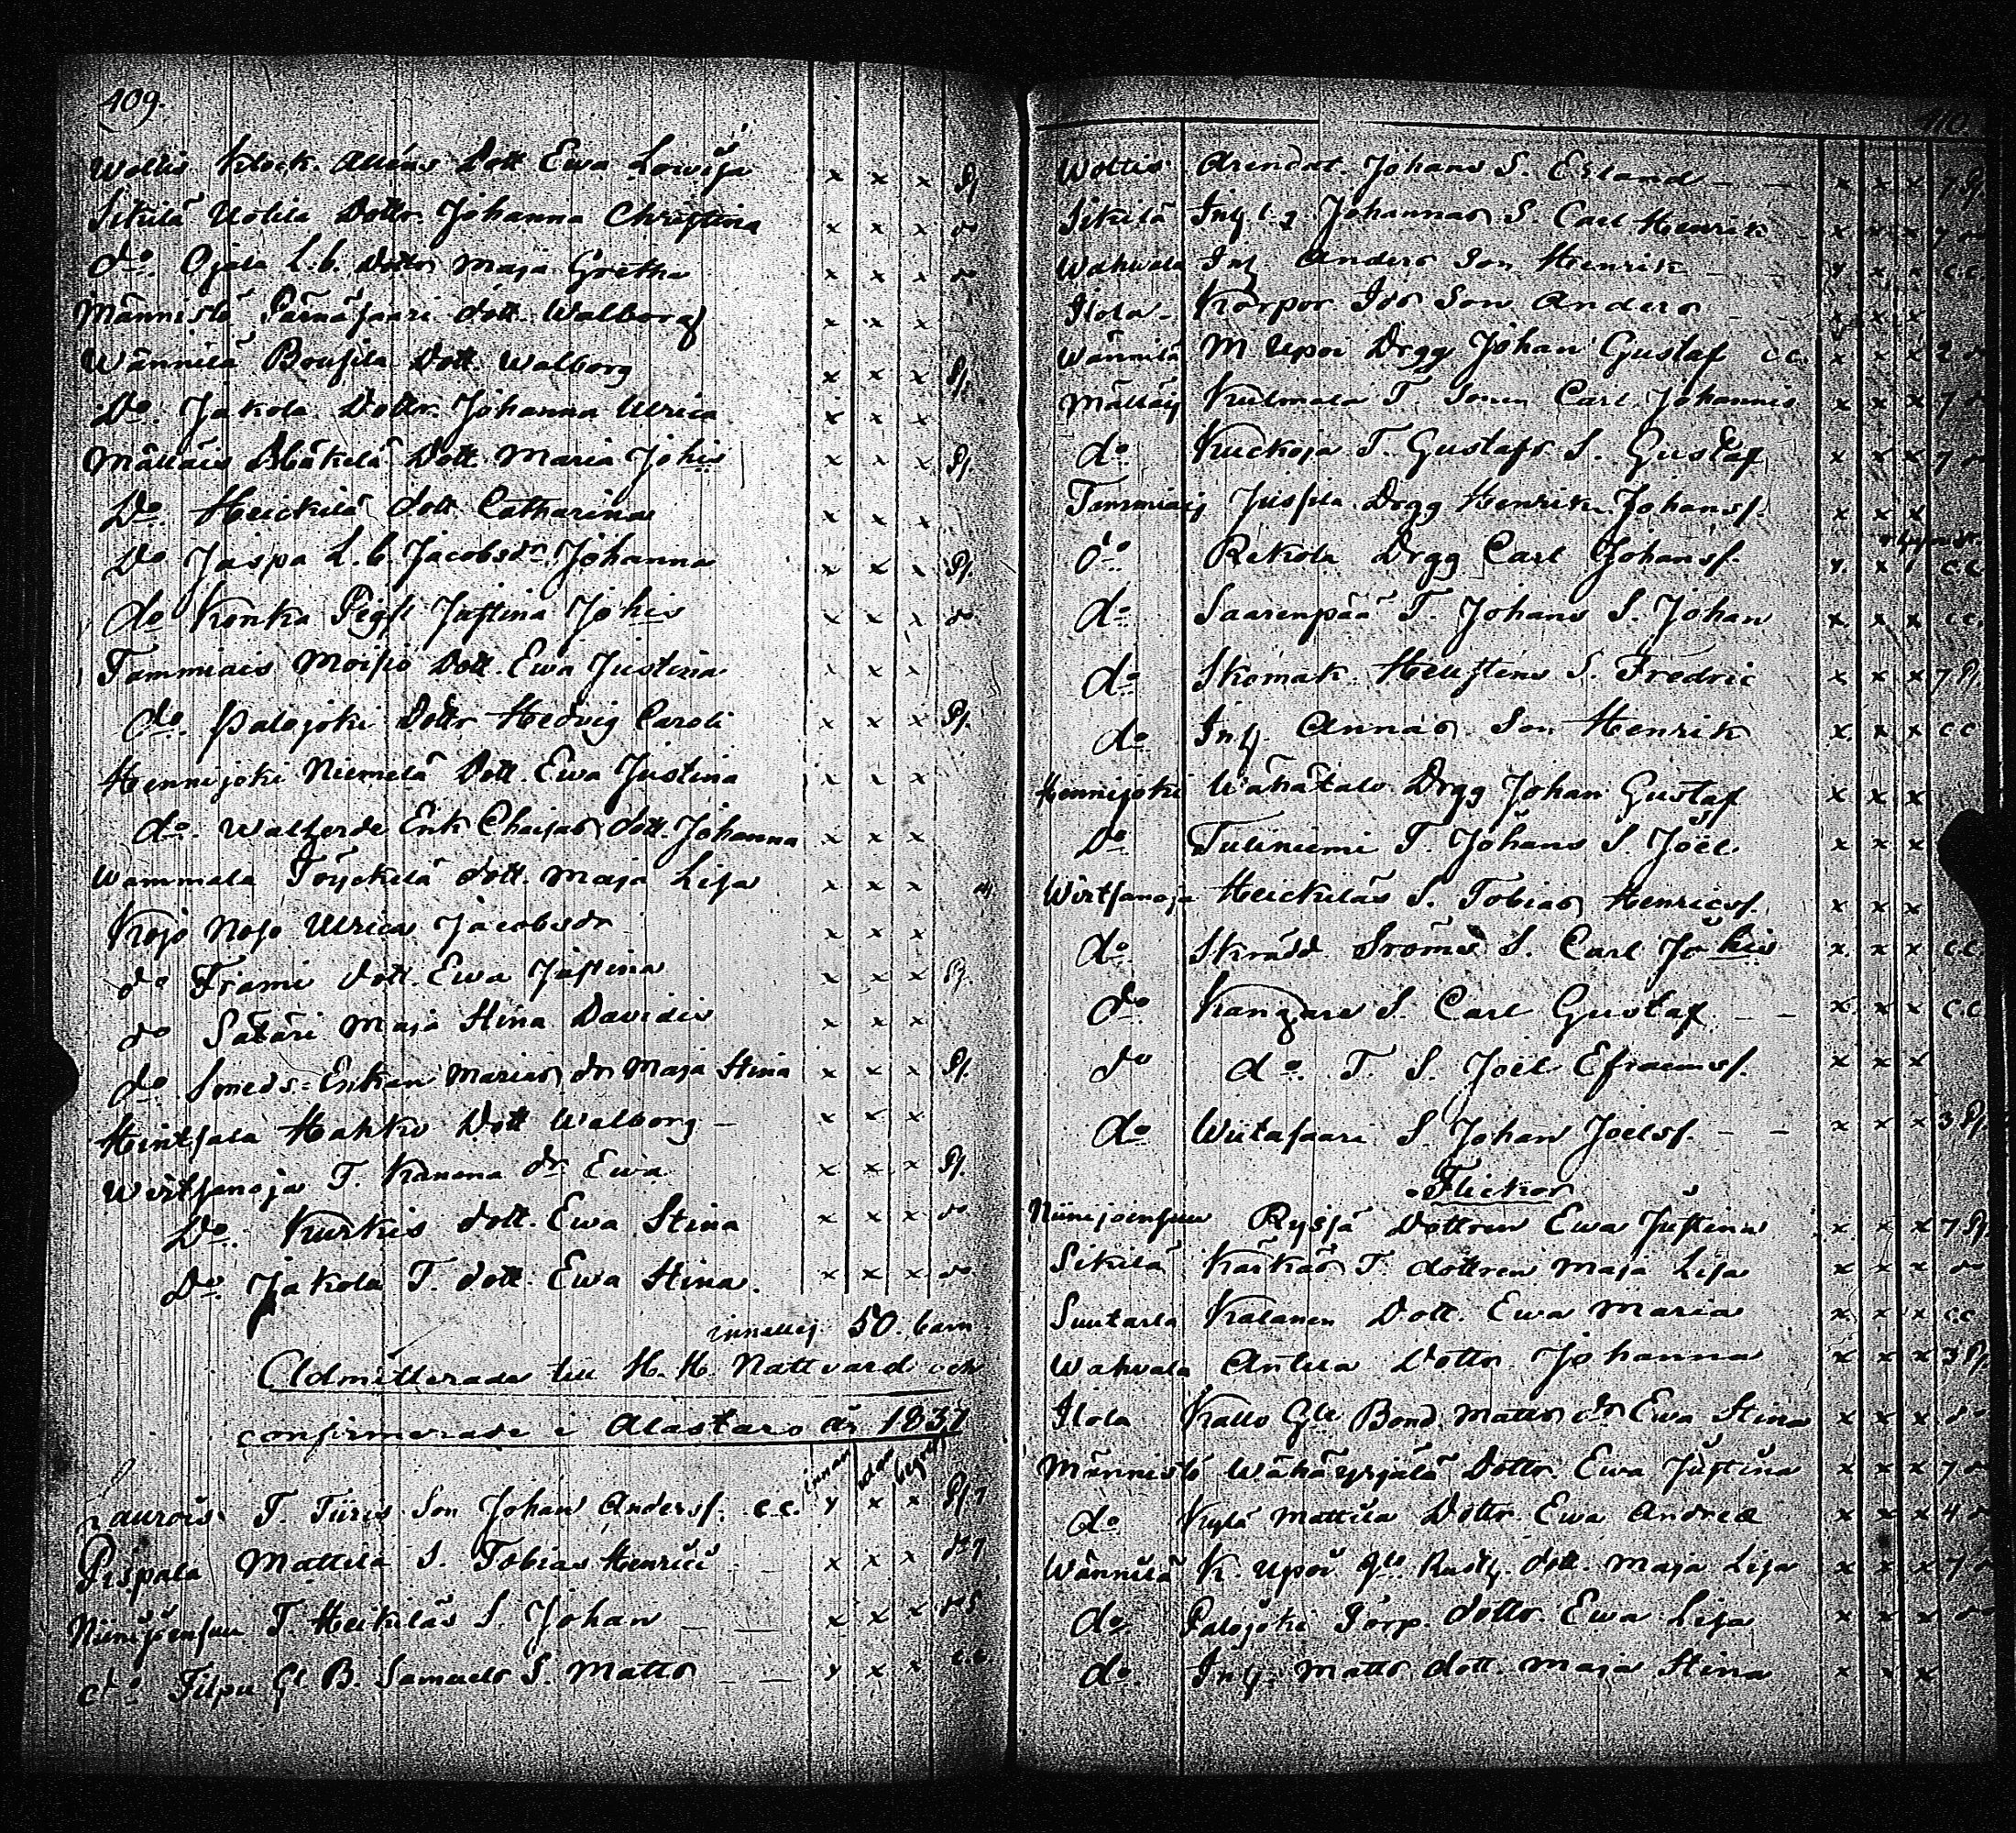 109.
Wollis Klock. Alléns Dott Ewa Lowisa x x x Ps
Sikilä Uotila Dottr. Johanna Christina x x x do
do Ojala L.b. Dottr Maja Gretha x x x do
Männistö Pärnäsaari dott. Walborg x x x
Wännilä Bousila Dott. Walborg x x x Ps.
Do. Jakola Dottr. Johanna Ulrica x x x
Mälläis Dott. Maria Johis x x x Ps.
Do. Heickilä dott Catharina x x x
Do Jaspa L.b. Jacobsdr. Johanna x x x Ps.
do Konka Pigh Justina Johis x x x do
Tammiais Moisio Dott. Ewa Justina x x x
do. Palojoki Dottr Hedvig Caroli x x x Ps.
Hennijoki Niemelä Dott. Ewa Justina x x x
do. Erik dott. Johanna x x x
Wammala Töyckilä dott. Maja Lisa x x x
Kojo Nojo Ulrica Jacobsdr x x x
do Frami dott. Ewa Justina x x x Ps.
do Säkäri Maja Stina Davidis x x x
do. Smeds-Enkan Marias dr Maja Stina x x x Ps.
Hintsala Hahko Dott Walborg – x x x
Wirtsanoja T. Kanona dr Ewa x x x Ps.
Do. Kurkis dott. Ewa Stina x x x do
Do. Jakola T. dott. Ewa Stina. x x x do
innalles 50. barn
Admitterade till H. H. Nattvard och
confirmerade i Alastaro år 1837
innan utan begr
Laurois T. Tiiris Son Johan Anderss. c.c. x x x Ps 7
Pispala Mattila S. Tobias Henrici x x x do 7
Niinijoensuu T. Heikiläs S. Johan – – x x x do 5
do. Filpu Gl B. Samuels S. Matts – – x x x c.c.
110.
Wollis Arendat. Johans S. Erland – – x x x 7 Ps
Sikilä Inh. Johannas S. Carl Henrik x x x 7 do
Wahvala Inh Anders Son Henrik – – x x x c.c
Ilola – Korpor. Ids Son Anders – – x x x
Wännilä M Upoi Drgg Johan Gustaf c.c. x x x 2 do
Mälläis Kulmala T. Sonen Carl Johannis x x x 7 do
do. Kuckoja T. Gustafs S. Gustaf x x x 7 do
Tammiais Jussila Drgg Henrik Johanss. x x x
do Rekola Drgg Carl Johanss. x x x c.c.
do Saarenpää T. Johans S. Johan x x x c.c.
do Skomak. Hellstens S. Fredric x x x 7 Ps
do Inh. Annas Son Henrik x x x c c
Hennijoki Wähätalo Drgg Johan Gustaf x x x
Do Tuliniemi T. Johans S. Joël x x x
Wirtsanoja Heickiläs S. Tobias Henricss. x x x
do. Skrädd. Ströms S. Carl Johis x x x c.c.
do Kangars S. Carl Gustaf – – x x x c.c
do do. T. S. Joël Efraimss. x x x
do Wiitasaari S. Johan Joelss. – – x x x 3 Ps
Flickor
Niinijoensuu Ryssä Dottren Ewa Justina x x x 7 Ps
Sikilä Karkas T. dottren Maja Lisa x x x do
Suutarla Kalanen Dott. Ewa Maria x x x c.c
Wahvala Antila Dottr. Johanna x x x 3 Ps
Ilola Kallo Gle Bond. Matts dr Ewa Stina x x x do
Männistö Wähäyrjälä Dottr. Ewa Justina x x x 7 do
do. Kylä Mattila Dottr. Ewa Andreæ x x x 4 do
Wännilä K. Upoi Gle Rusth. dott. Maja Lisa x x x 7 do
do. Palojoki Torp. dottr. Ewa Lisa x x x do
do. Inh. Matts dott. Maja Stina x x x